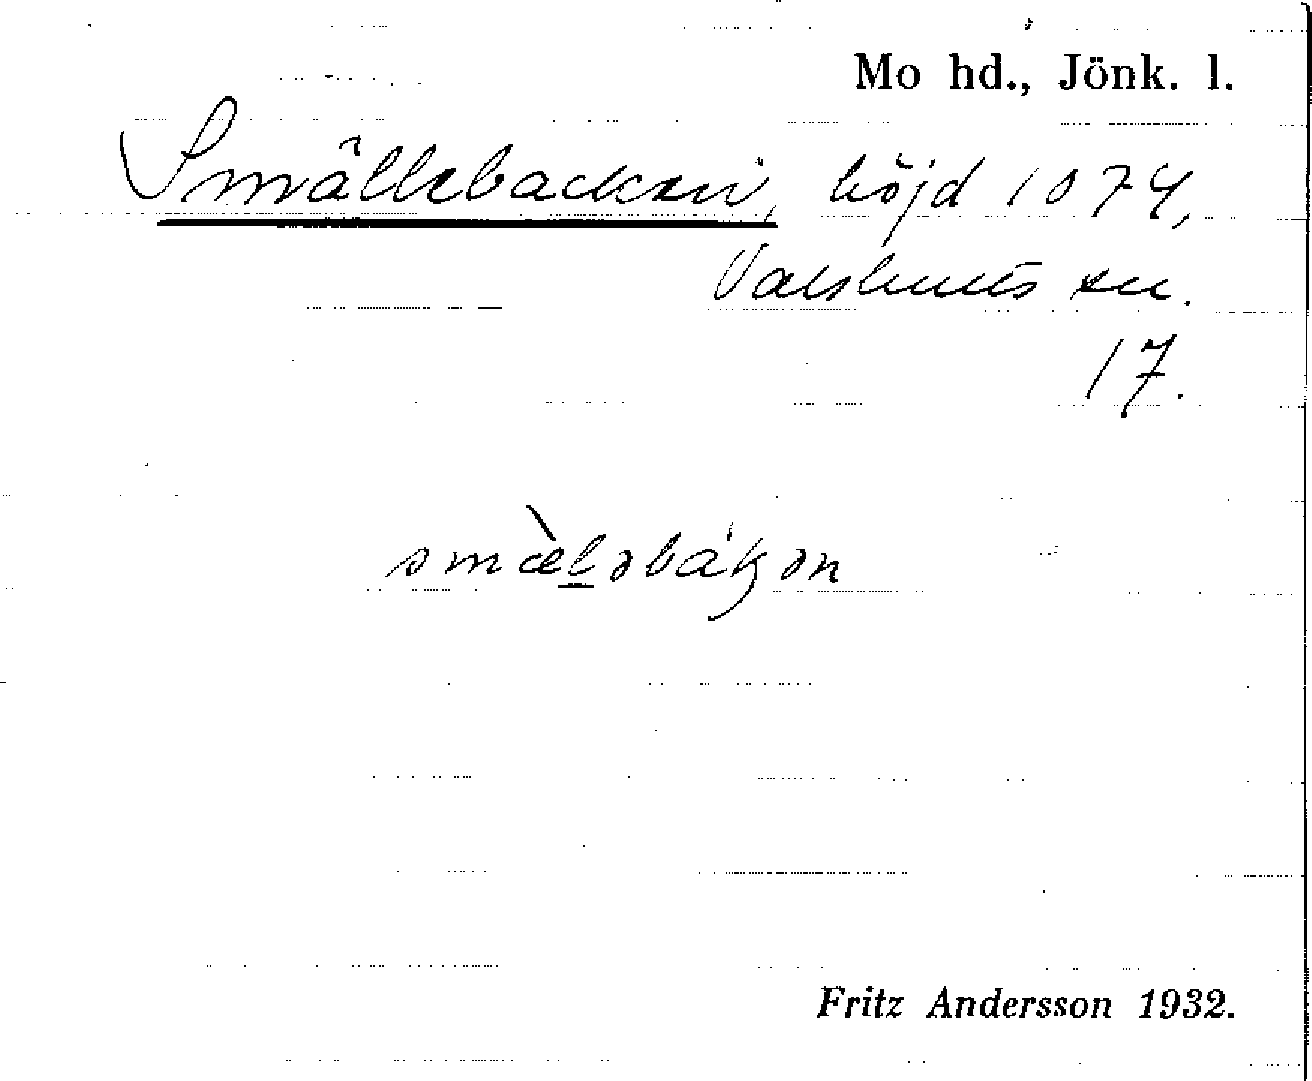 Mo hd., Jönk. l.
Smällebacken, höjd 1074,
Valshults sn.
17.
smæ̀l̲əbákən
Fritz Andersson 1932.